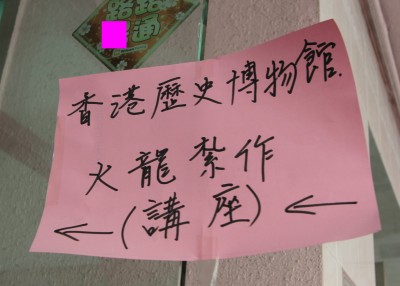 路路
通
香港歷史博物館
火龍紮作
←(講座) ←